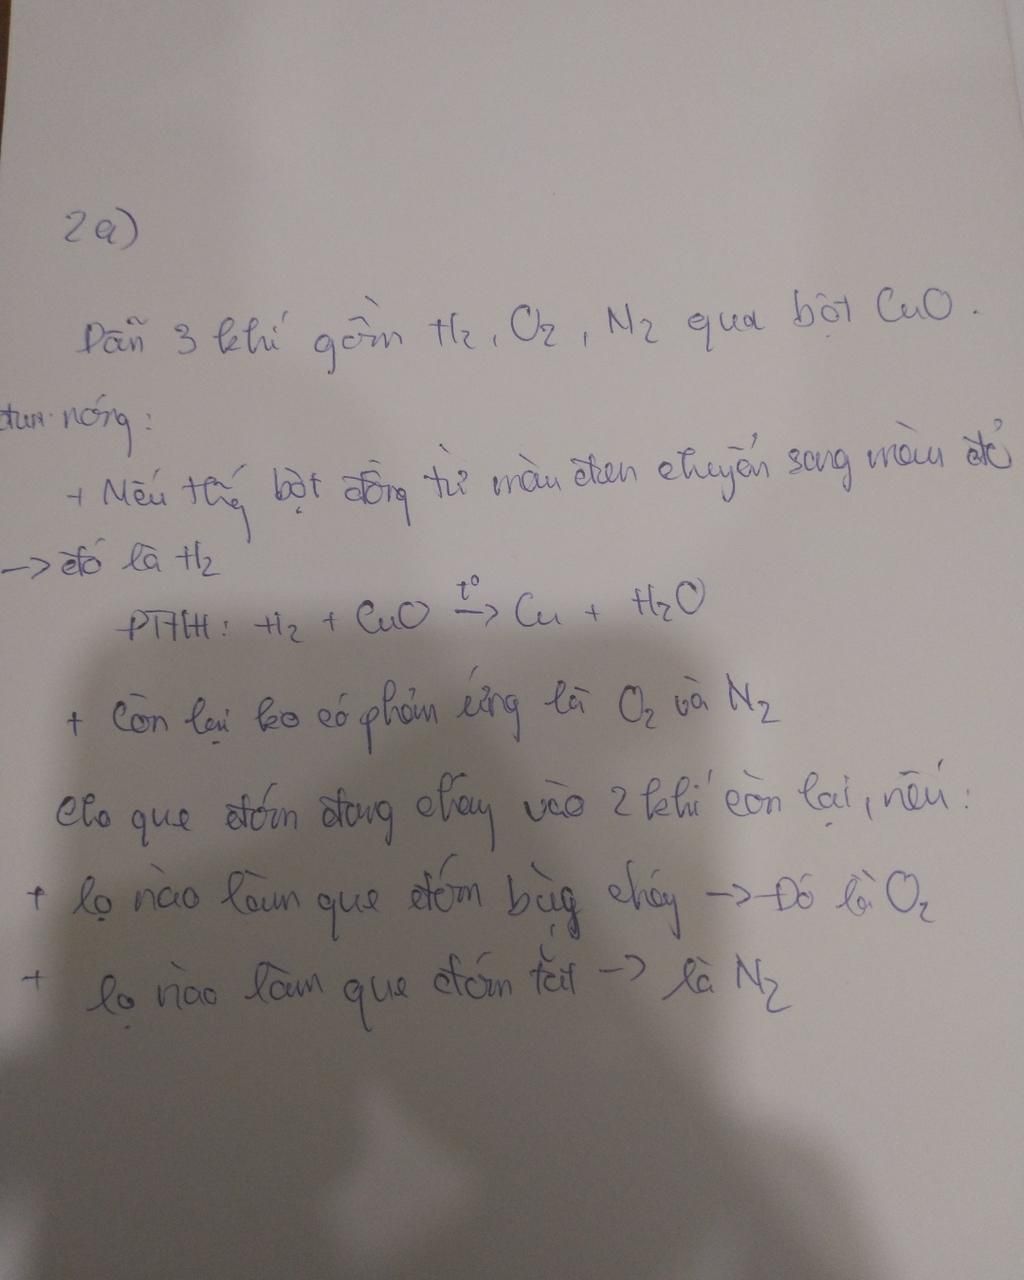 2a)
Dẫn 3 khí gồm H2, O2, N2 qua bột CuO.
đun nóng:
+ Nếu thấy bột đồng từ màu đen chuyển sang màu đỏ
-> đó là H2
PTHH: H2 + CuO t° -> Cu + H2O
+ Còn lại ko có phản ứng là O2 và N2
Cho que đóm đang cháy vào 2 khí còn lại, nếu:
+ lọ nào làm que đóm bùng cháy -> Đó là O2
+ lọ nào làm que đóm tắt -> là N2